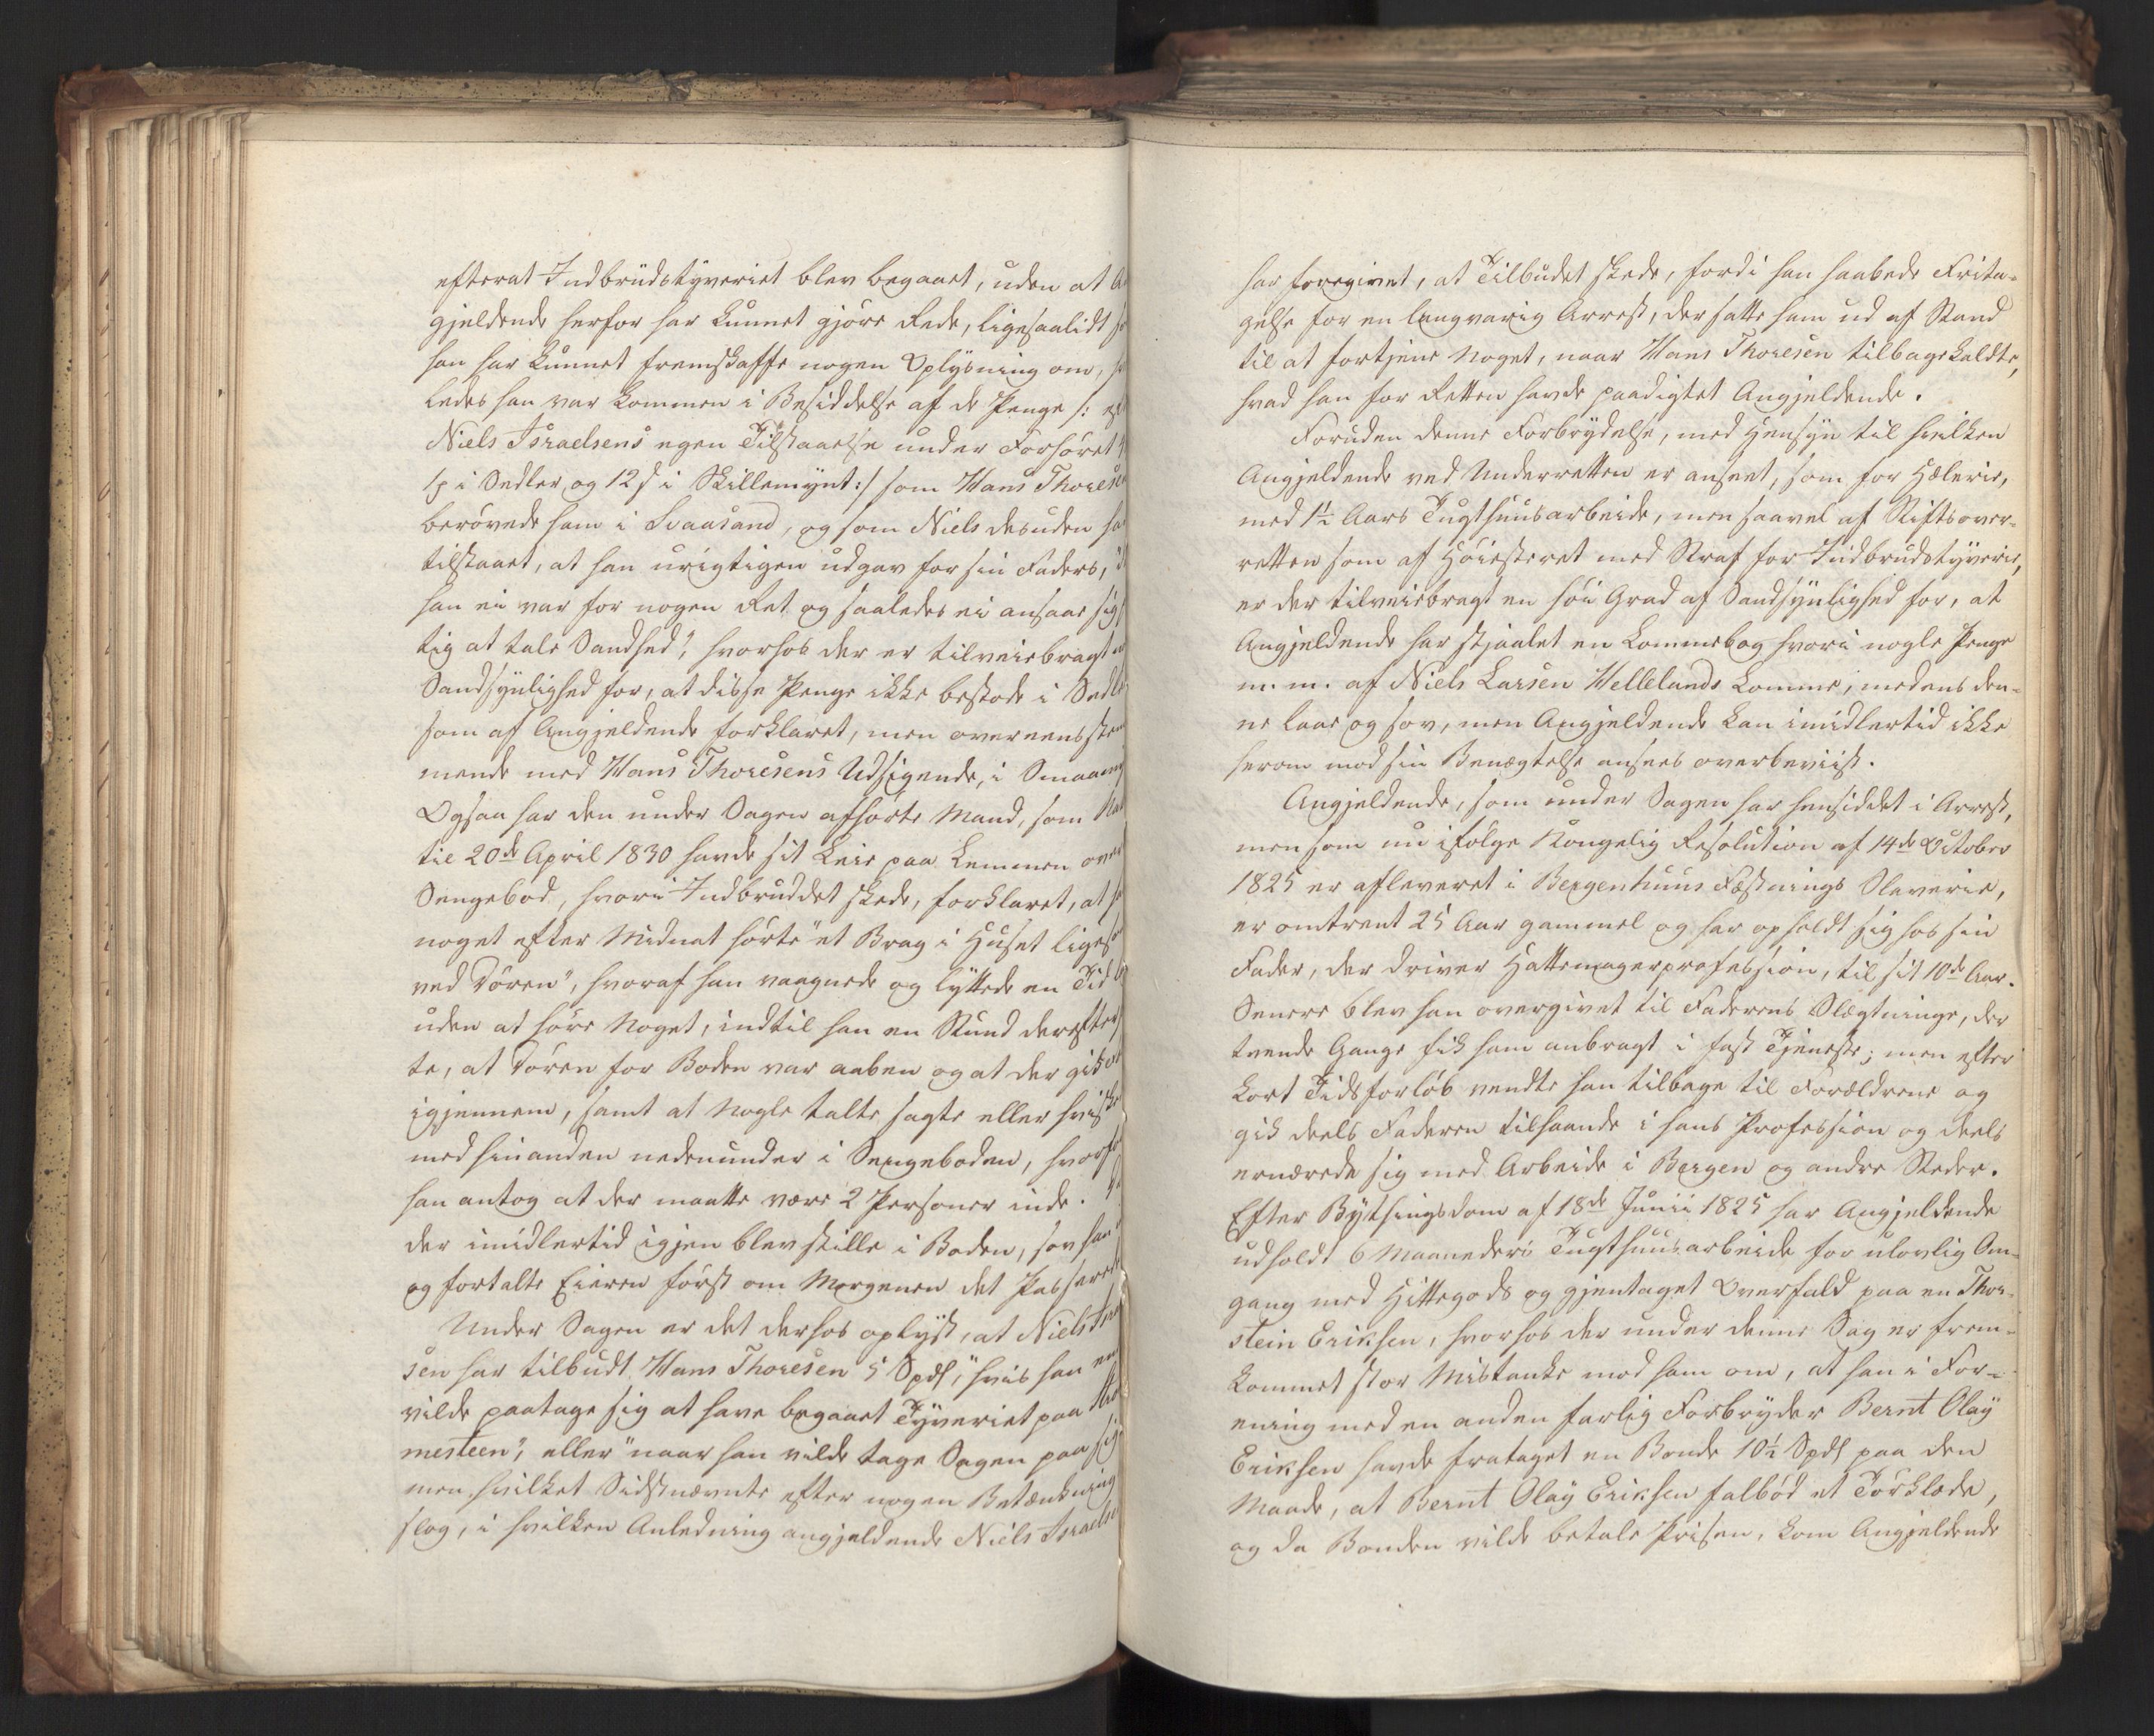 efterat Indbrudstyveriet blev begaaet, uden at
gjeldende herfor har kunnet gjöre Rede, ligesaalidt
han har kunnet fremskaffe nogen Oplysning om,
ledes han var kommen i Besiddelse af de Penge /:
Niels Israelsens egen Tilstaaelse under Forhöret
i Sedler og 12 s i Skillemynt :/ som Hans Thoresen
berövede ham i Svaasand, og som Niels desuden
tilstaaet, at han urigtigen udgav for sin Faders,
han ei var for nogen Ret og saaledes ei ansaae sig
tig at tale Sandhed", hvorhos der er tilveiebragt
Sandsynlighed for, at disse Penge ikke bestode i
som af Angjeldende forklaret, men overeensstem
mende med Hans Thoresens Udsigende, i
Ogsaa har den under Sagen afhörte Mand, som
til 20de April 1830 havde sit Leie paa Lemmen over
Sengebod, hvori Indbruddet skede, forklaret, at
noget efter Midnat hörte "et Brag i Huset
ved Dören", hvoraf han vaagnede og lyttede en Tid
uden at höre Noget, indtil han en Stund derefter
te, at Dören for Boden var aaben og at der gik
igjennem, samt at Nogle talte sagte eller
med hinanden nedenunder i Sengeboden,
han antog at der maatte være 2 Personer inde.
der imidlertid igjen blev stille i Boden, sov han
og fortalte Eieren först om Morgenen det
Under Sagen er det derhos oplyst, at Niels
sen har tilbudt Hans Thoresen 5 Spdl, "hvis han
vilde paatage sig at have begaaet Tyveriet paa
mesteen", eller "naar han vilde tage Sagen paa
men hvilket Sidstnævnte efter nogen Betænkning
slog, i hvilken Anledning angjeldende Niels
har foregivet, at Tilbudet skede, fordi han haabede Frita-
gelse for en langvarig Arrest, der satte ham ud af Stand
til at fortjene Noget, naar Hans Thoresen tilbagekaldte,
hvad han for Retten havde paadigtet Angjeldende.
Foruden denne Forbrydelse, med Hensyn til hvilken
Angjeldende ved Underretten er anseet, som for Hæleri,
med 1½ Aars Tugthuusarbeide, men saavel af Stiftsover-
retten som af Höiesteret med Straf for Indbrudstyverie,
er der tilveiebragt en höi Grad af Sandsynlighed for, at
Angjeldende har stjaalet en Lommebog hvori nogle Penge
m. m. af Niels Larsen Hellelands Lomme, medens den-
ne laae og sov, men Angjeldende kan imidlertid ikke
herom mod sin Benægtelse ansees overbeviist.
Angjeldende, som under Sagen har hensiddet i Arrest,
men som nu ifölge Kongelig Resolution af 14de October
1825 er afleveret i Bergenhuus Fæstnings Slaverie,
er omtrent 25 Aar gammel og har opholdt sig hos sin
Fader, der driver Hattemagerprofession, til sit 10de Aar.
Senere blev han overgivet til Faderens Slægtninge, der
tvende Gange fik ham anbragt i fast Tjeneste; men efter
kort Tidsforlöb vendte han tilbage til Forældrene og
gik deels Faderen tilhaande i hans Profession og deels
ernærede sig med Arbeide i Bergen og andre Steder.
Efter Bythingsdom af 18de Junii 1825 har Angjeldende
udholdt 6 Maaneders Tugthuusarbeide for ulovlig Om-
gang med Hittegods og gjentaget Overfald paa en Thor-
stein Eriksen, hvorhos der under denne Sag er frem-
kommet stor Mistanke mod ham om, at han i For-
ening med en anden farlig Forbryder Bernt Olay
Eriksen havde frataget en Bonde 10½ Spdl paa den
Maade, at Bernt Olay Eriksen falböd et Törklæde,
og da Bonden vilde betale Prisen, kom Angjeldende